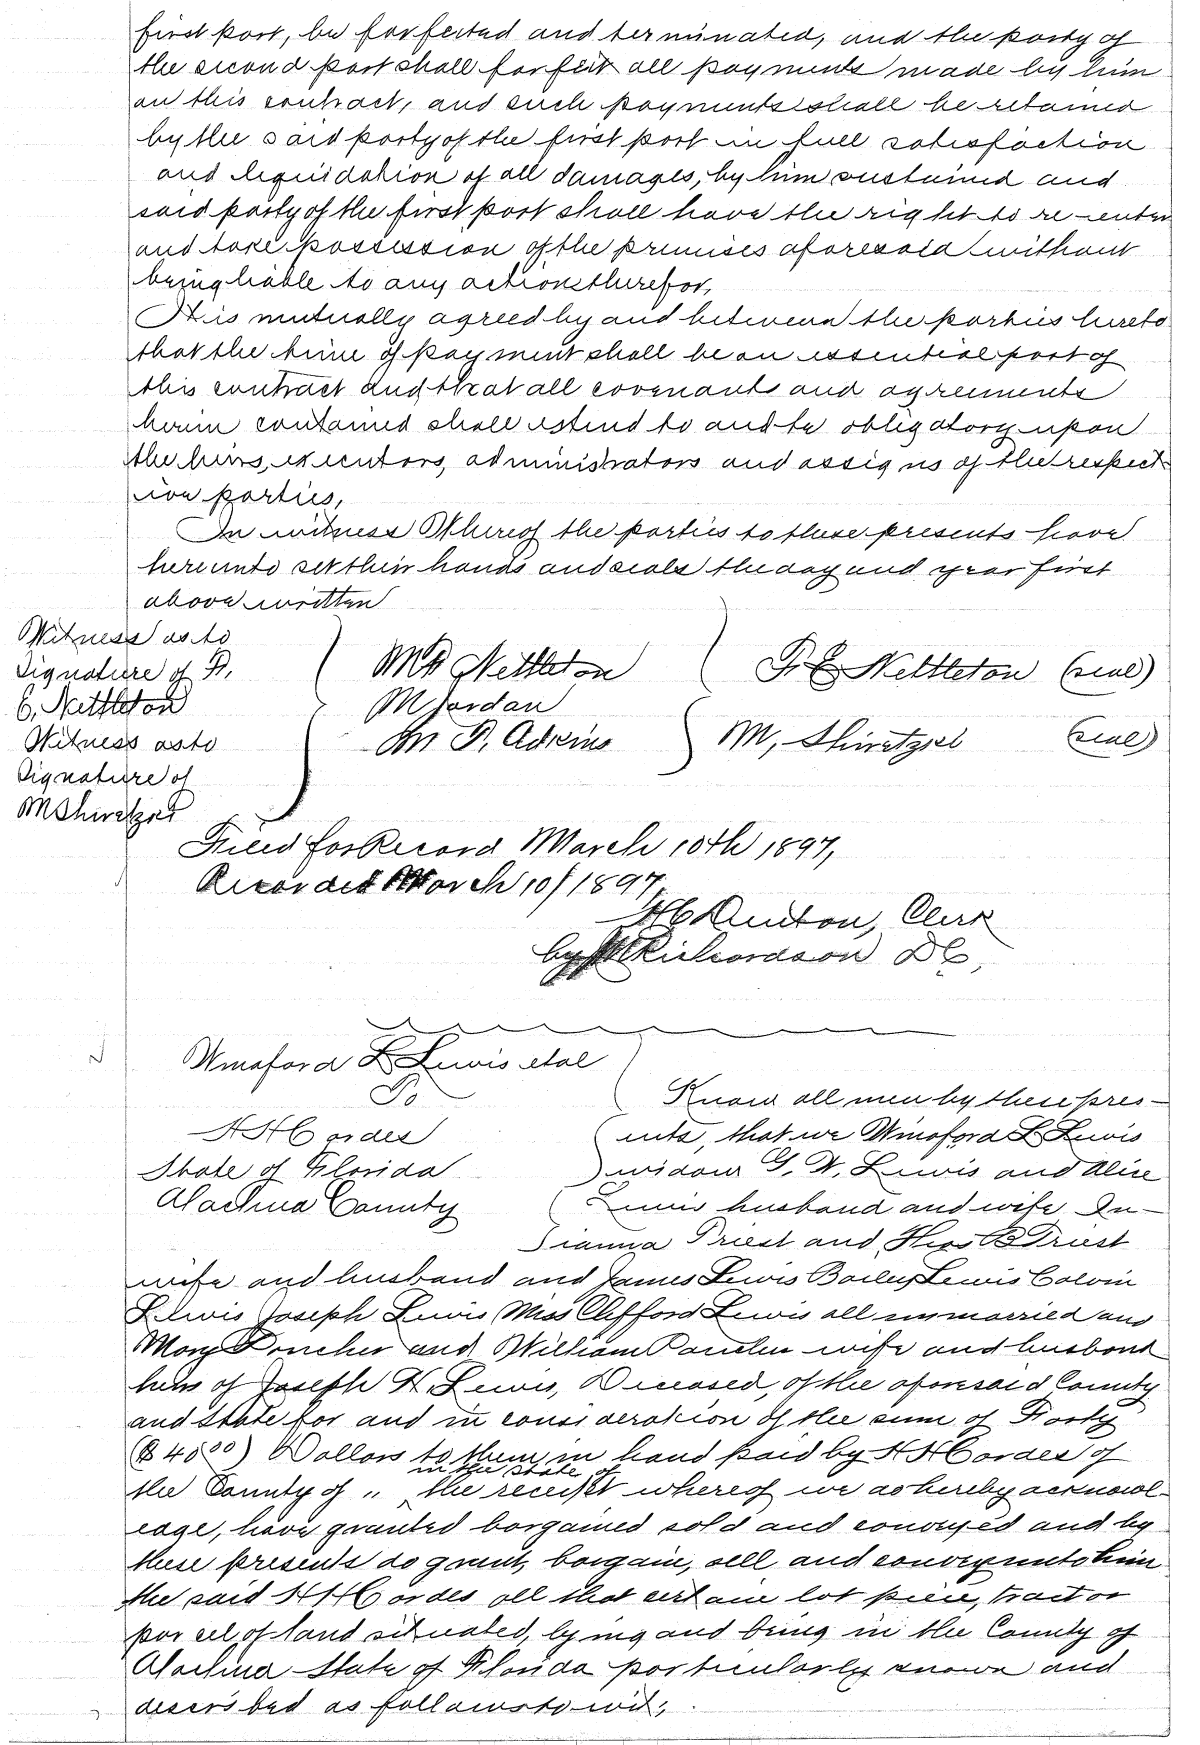 first part, be forfeited and terminated, and the party of
the second part shall forfeit all payments made by him
on this contract, and such payments shall be retained
by the said party of the first part in full satisfaction
and liquidation of all damages, by him sustained and
said party of the first part shall have the right to re-enter
and take possession of the premises aforesaid without
being liable to any action therefor,
It is mutually agreed by and between the parties hereto
that the time of payment shall be an essential part of
this contract and that all covenants and agreements
herein contained shall extend to and be obligatory upon
the heirs, executors, administrators and assigns of the respect-
ive parties,
In witness Whereof the parties to these presents have
hereunto set their hands and seals the day and year first
above written
Witness as to
Signature of A.
E. Nettleton
Witness as to
Signature of
M Shiretzset
Nettleton
M Jordan
Adkins
E Nettleton (seal)
M, Shiretzsel (seal)
Filed for Record March 10th 1897,
Recorded March 10/1897,
H C Denton, Clerk
by Richardson D C,
Winaford L Lewis etal
To
H H Cordes
State of Florida
Alachua County
Know all men by these pres-
ents, that we Winaford L Lewis
widow G. W. Lewis and Alice
Lewis husband and wife In-
dianna Priest and B Priest
wife and husband and James Lewis Bailey Lewis Calvin
Lewis Joseph Lewis Miss Clifford Lewis all unmarried and
Mary and William wife and husband
heirs of Joseph W. Lewis, Deceased, of the aforesaid County
and State for and in consideration of the sum of Forty
($ 40 00) Dollars to them in hand paid by H H Cordes of
in the State of
the County of " the receipt whereof we do hereby acknowl-
edge, have granted bargained sold and conveyed and by
these presents do grant, bargain, sell and convey unto him
the said H H Cordes all that certain lot piece, tract or
parcel of land situated, lying and being in the County of
Alachua State of Florida particularly known and
described as follows to wit;